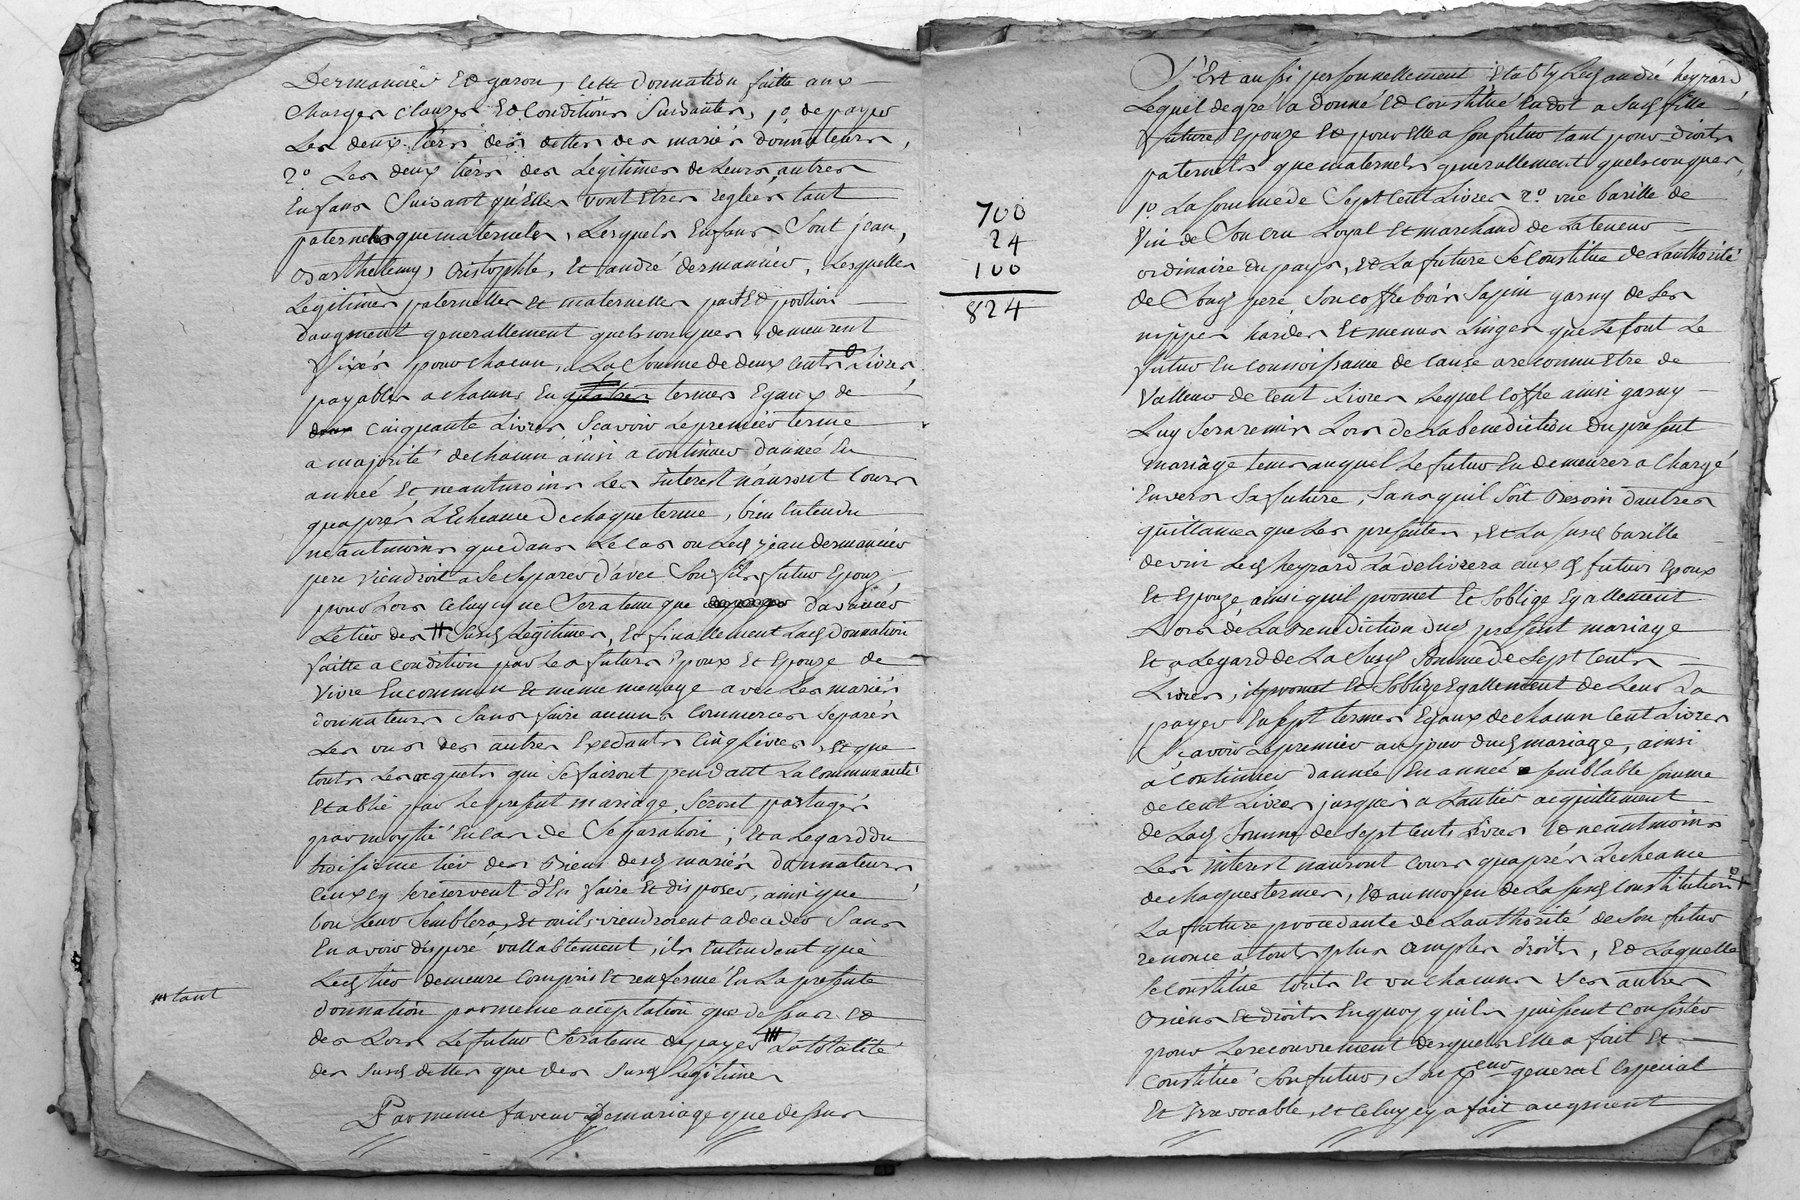 Dermanies et garon, cette donnation faitte aux
charges clauzes et conditions suivantes, 1º de payer
les deux tiers des dettes des mariés donnateurs,
2º les deux tiers des legitimes de leurs autres
enfans suivant qu'elles vont etres reglées tant
paternels que maternels, lesquels enfans sont jean,
barthelemy, cristophle, et andré dermanies, lesquelles
legitimes paternelles et maternelles part et portion
daugment generallement quelsconques, demeurent
fixés pour chacun, a la somme de deux cents livres
payables a chacuns en termes egaux de
cinquante livres scavoir le premier terme
a majorité de chacun ainsi a continuer dannée en
année et neantmoins les interest nauront cours
quaprés l'echeance de chaque terme, bien entendu
neantmoins que dans le cas ou led jean dermanies
pere viendroit a se separer d'avec son fils futur epoux
pour lors celuy cy ne sera tenu que davancer
le tier des # susd legitimes, et finallement lad donnation
faitte a condition par les futurs epoux et epouze de
vivre en commun et meme menage avec les mariés
donnateurs sans faire aucuns commerces separés
les uns des autres exedants cinq livres, et que
touts les acquets qui se fairont pendant la communauté
etablie par le present mariage, seront partagés
par moytié en cas de separation; et a legard du
troisieme tier des biens desd mariés donnateurs
ceux cy se reservent d'en faire et disposer, ainsi que
bon leur semblera, et ou ils viendroient a deceder sans
en avoir disposé vallablement, ils entendent que
led tier demeure compris et renfermé en la presente
donnation par meme acceptation que dessus et
des lors le futur sera tenu de payer # la totalité
des susd dettes que des susd legitimes
Par meme faveur de mariage que dessus
# tant
700
24
100
824
S'est aussi personnellement etably led andré heyrard
lequel de gré a donné et constitué en dot a sad fille
future epouze et pour elle a son futur tant pour droits
paternels que maternels generallement quelsconques,
1º la somme de sept cent livres 2º une barille de
vin de son cru loyal et marchand de la teneur
ordinaire du pays, et la future se constitue de lauthorité
de sond pere son coffre bois sapin garny de ses
nippes hardes et menus linges que le font le
futur en connoissance de cause a reconnu etre de
valleur de cent livres lequel coffre ainsi garny
luy sera remis lors de la benediction du present
mariage tems auquel le futur en demeurera chargé
envers sa future, sans quil soit besoin dautres
quittances que les presentes, et la susd barille
de vin led heyrard la delivrera aux d futurs epoux
et epouze ainsi quil promet et soblige egallement
lors de la benediction dud present mariage
et a legard de la susd somme de sept cents
livres, il promet et soblige egallement de leur la
payer en sept termes egaux de chacun cent livres
scavoir le premier au jour dud mariage, ainsi
a continuer dannée en année semblable somme
de cent livres jusques a lentier acquittement
de lad somme de sept cents livres et neantmoins
les interest nauront cours quaprés l'echeance
de chaques termes, et au moyen de la susd constitution
la future procedante de lauthorité de son futur
renonce a touts plus amples droits, et laquelle
se constitue touts et un chacuns ses autres
biens et droits en quoy quils puissent consister
pour le recouvrement desquels elle a fait et
constitué son futur, son p.eur general especial
et irrevocable, et celuy cy a fait augment